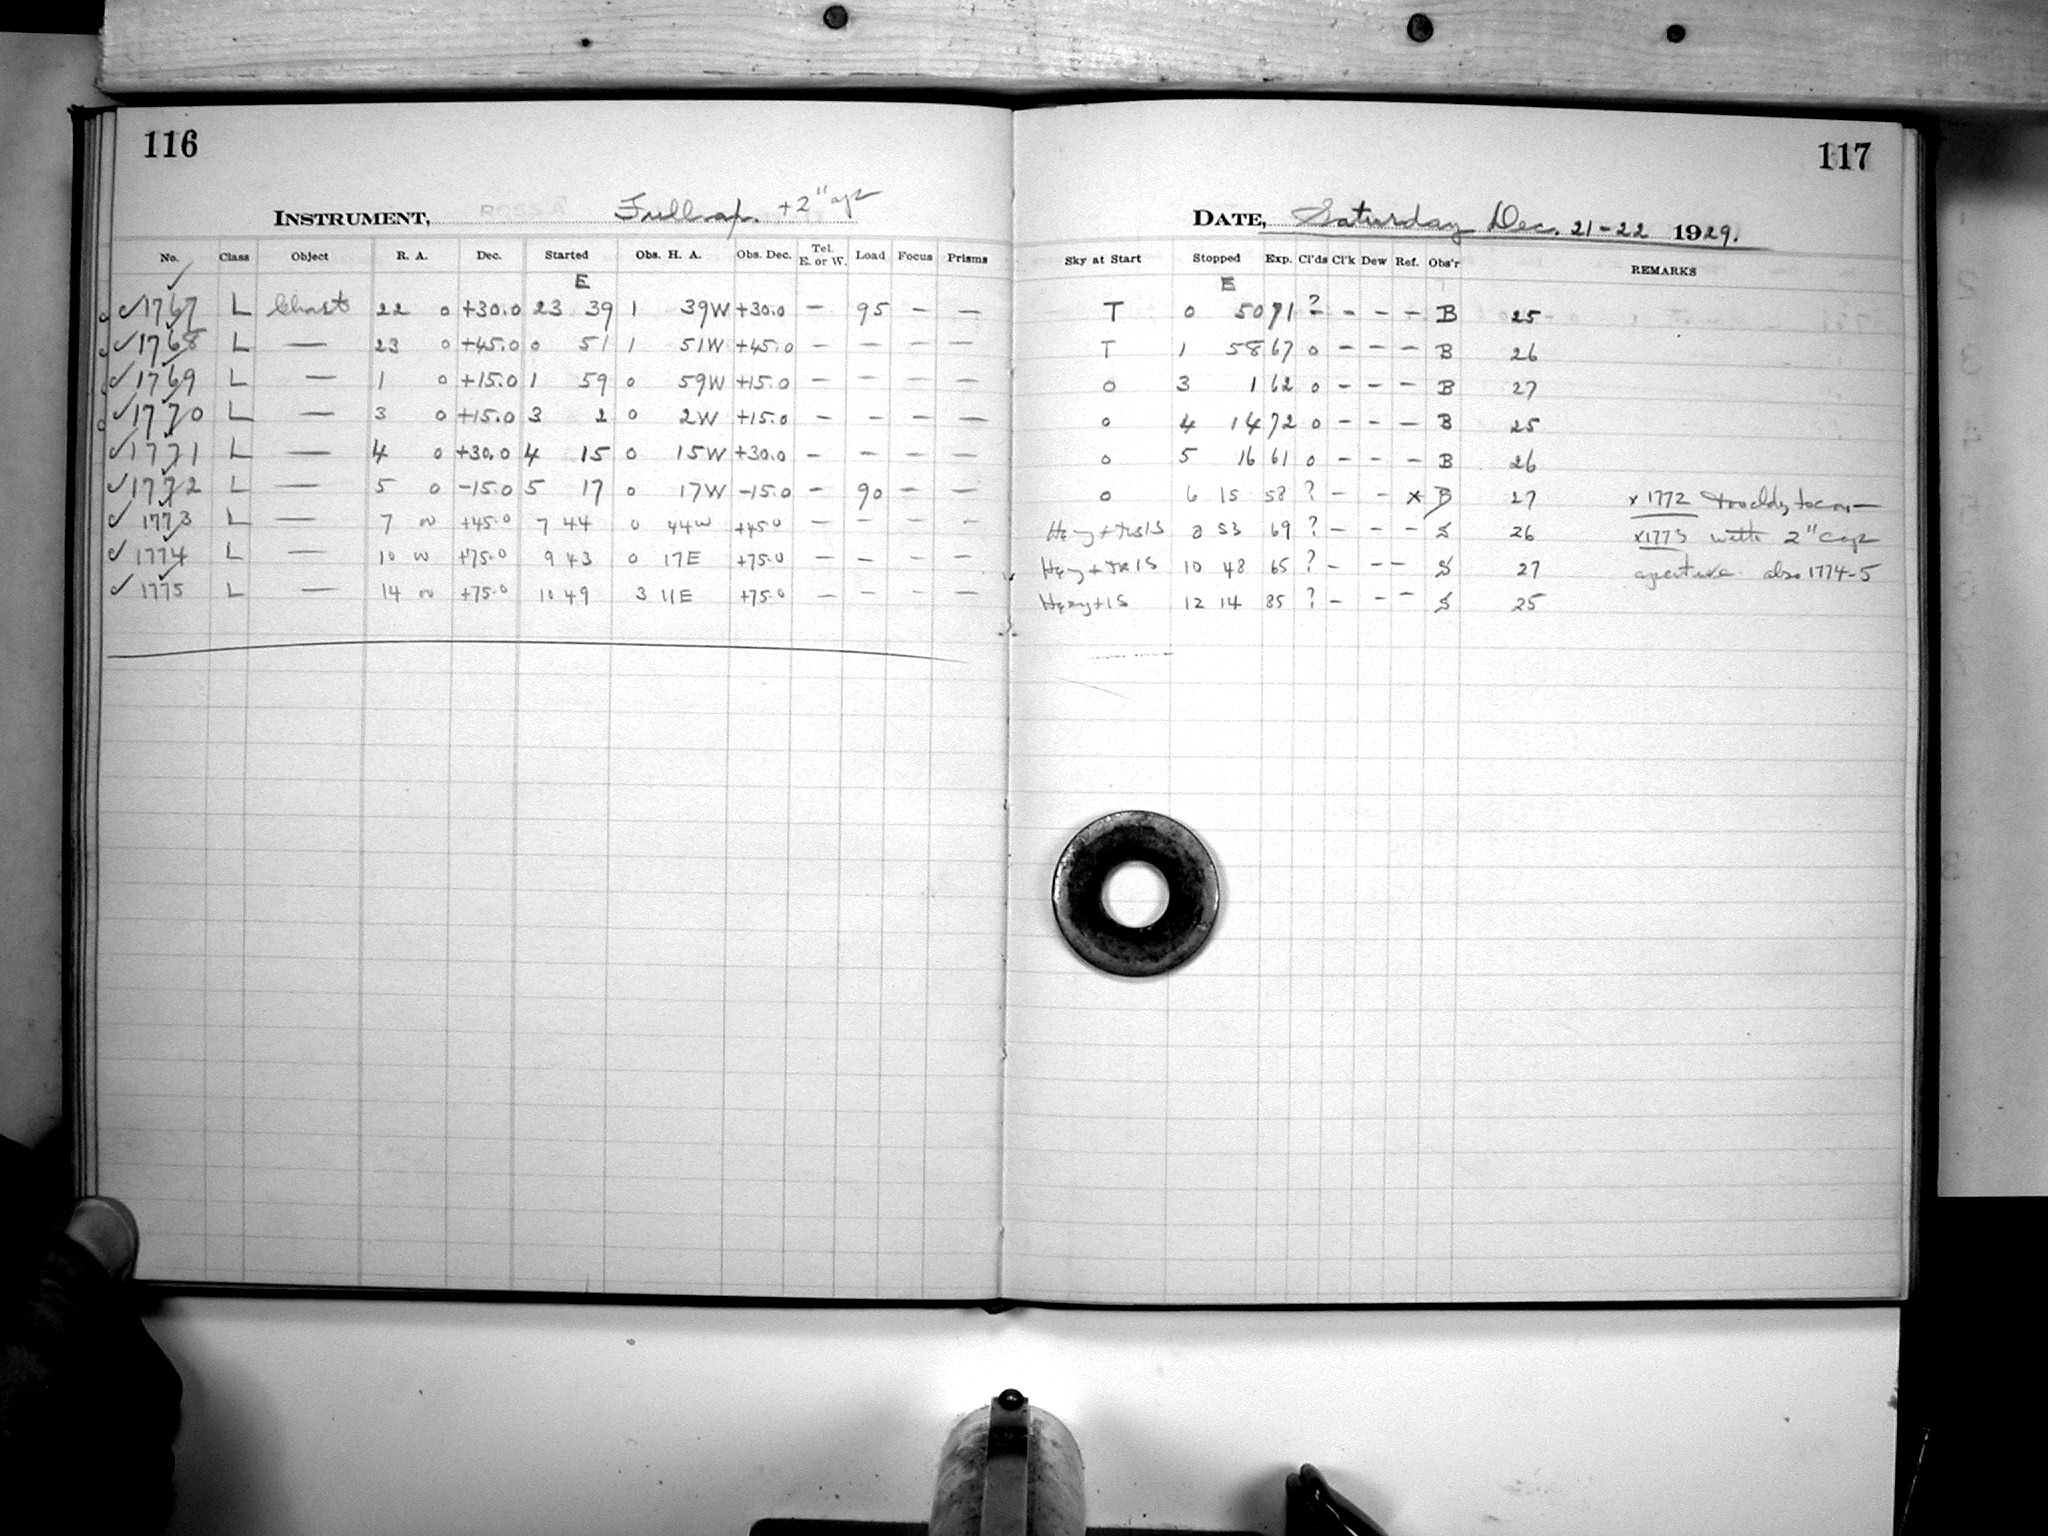 116
INSTRUMENT, Full ap. +2" ap
No. Class Object R. A. Dec. Started Obs. H. A. Obs. Dec. Tel. E. or W. Load Focus Prisms
E
✓1767 L Chart 22 0 +30.0 23 39 1 39W +30.0 — 95 — —
✓1768 L — 23 0 +45.0 0 51 1 51W +45.0 — — — —
✓1769 L — 1 0 +15.0 1 59 0 59W +15.0 — — — —
✓1770 L — 3 0 +15.0 3 2 0 2W +15.0 — — — —
✓1771 L — 4 0 +30.0 4 15 0 15W +30.0 — — — —
✓1772 L — 5 0 -15.0 5 17 0 17W -15.0 — 90 — —
✓1773 L — 7 +45.0 7 44 0 44W +45.0 — — — —
✓1774 L — 10 +75.0 9 43 0 17E +75.0 — — — —
✓1775 L — 14 +75.0 10 49 3 11E +75.0 — — — —
117
DATE, Saturday Dec. 21-22 1929.
Sky at Start Stopped Exp. Cl'ds Cl'k Dew Ref. Obs'r REMARKS
E
T 0 50 71 ? — — — B 25
T 1 58 67 0 — — — B 26
0 3 1 62 0 — — — B 27
0 4 14 72 0 — — — B 25
0 5 16 61 0 — — — B 26
0 6 15 58 ? — — x B 27 x 1772
8 53 69 ? — — — S 26 x1773 with 2" cap
10 48 65 ? — — — S 27 aperture. also 1774-5
12 14 85 ? — — — S 25